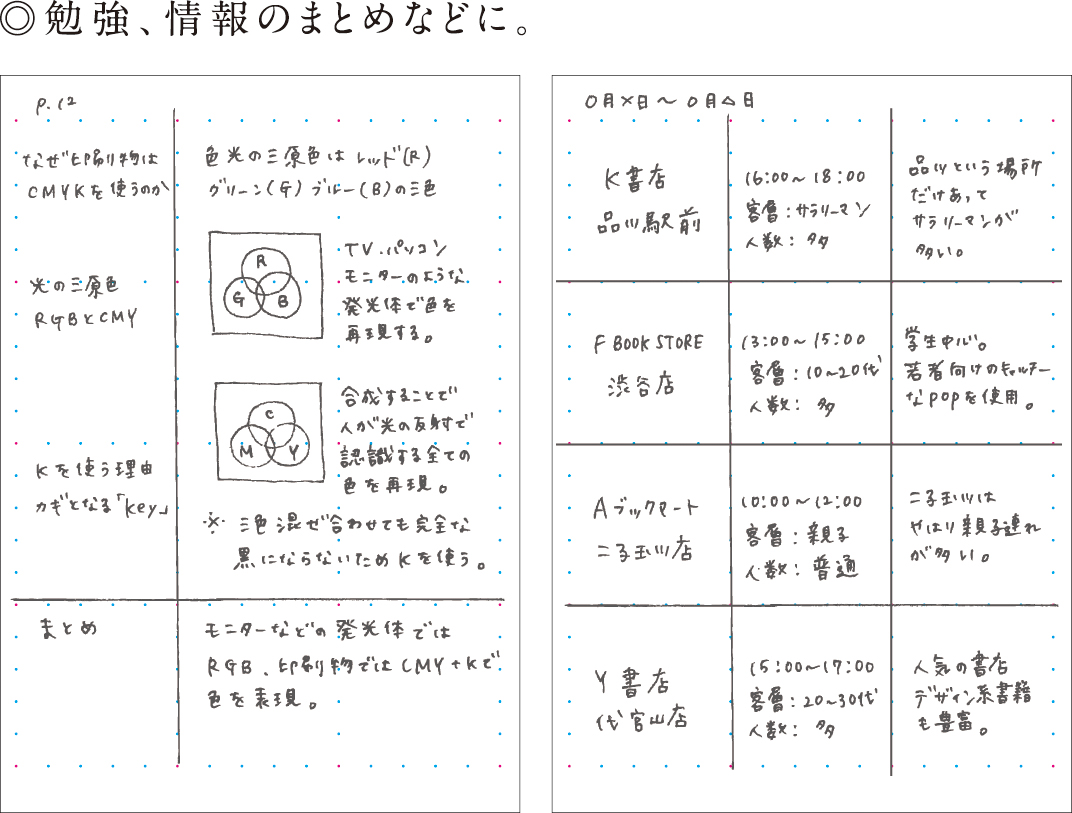 ◎勉強、情報のまとめなどに。
P.12
なぜ印刷物は
CMYKを使うのか
色光の三原色は レッド(R)
グリーン(G) ブルー(B)の三色
光の三原色
RGBとCMY
R
G
B
TV.パソコン
モニターのような
発光体で色を
再現する。
C
M
Y
合成することで
人が光の反射で
認識する全ての
色を再現。
Kを使う理由
カギとなる「key」
※ 三色混ぜ合わせても完全な
黒にならないためKを使う。
まとめ
モニターなどの発光体では
RGB、印刷物ではCMY+Kで
色を表現。
0月×日〜0月△日
K書店
品川駅前
16:00〜18:00
客層:サラリーマン
人数: 多
品川という場所
だけあって
サラリーマンが
多い。
F BOOK STORE
渋谷店
13:00〜15:00
客層:10〜20代
人数: 多
学生中心。
若者向けのキャルチー
なPOPを使用。
Aブックマート
二子玉川店
10:00〜12:00
客層:親子
人数: 普通
二子玉川は
やはり親子連れ
が多い。
Y書店
代官山店
15:00〜17:00
客層:20〜30代
人数: 多
人気の書店
デザイン系書籍
も豊富。